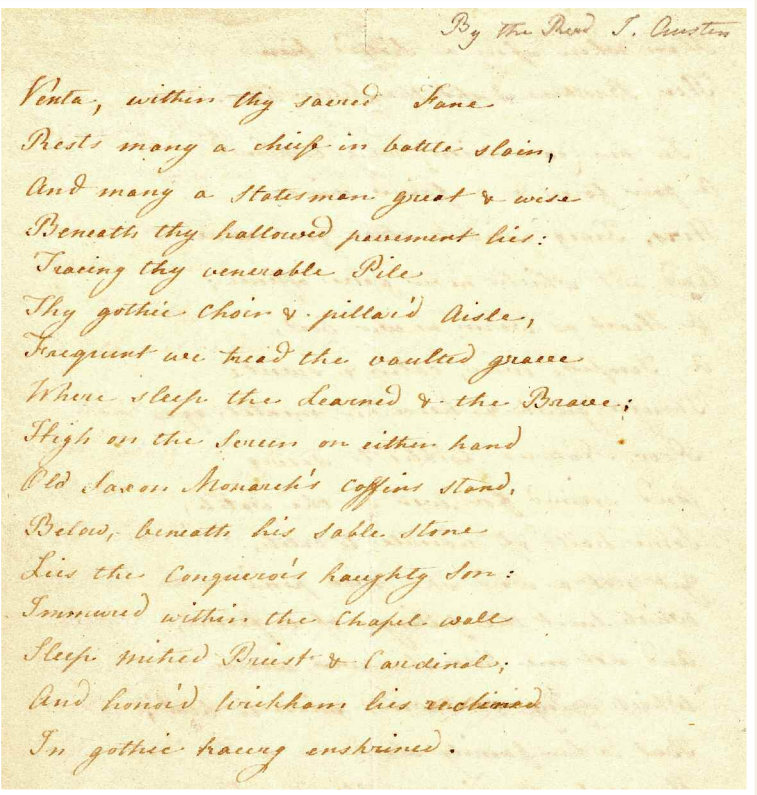 By the Revd J. Austen
Venta, within thy sacred Fane
Rests many a chief in battle slain,
And many a Statesman great & wise
Beneath thy hallowed pavement lies:
Tracing thy venerable Pile
Thy gothic Choir & pillar'd Aisle,
Frequent we tread the vaulted grave
Where sleep the Learned & the Brave;
High on the Screen on either hand
Old Saxon Monarch's Coffins stand,
Below, beneath his sable stone
Lies the Conqueror's haughty Son:
Immured within the Chapel wall
Sleep mitred Priest & Cardinal;
And honor'd Wickham lies reclined
In gothic tracery enshrined.